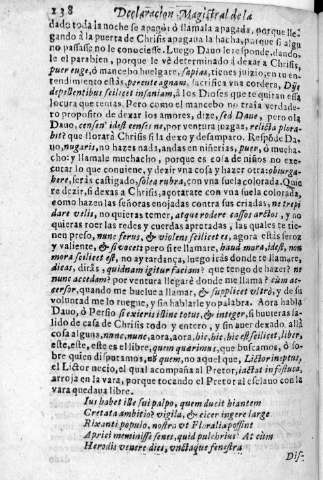 138 Declaracion Magistral de la
dado toda la noche se apagò: ò llamala apagada, porque lle-
gando a la puerta de Chrisis apagaua la hacha, porque si algu
no passasse no le conociesse. Luego Dauo le responde, dando-
le el parabien, porque le vè determinado à dexar a Chrisis,
puer euge, ò mancebo huelgate, sapias, tienes juizio, en tu en-
tendimiento estàs, percute agnam, sacrifica vna cordera, Dijs
depellentibus scilicet insaniam, à los Dioses que te quiran essa
locura que tentas. Pero como el mancebo no traìa verdade-
ro proposito de dexar los amores, dize, sed Daue, pero ola
Dauo, censen' idest censes ne, por ventura juzgas, relicta plora-
bit? que llorará Chrisis si la dexo y desamparo. Respōde Da-
uo, nugaris, no hazes nada, andas en niñerias, puer, ò mucha-
cho: y llamale muchacho, porque es cosa de niños no exe-
cutar lo que conuiene, y dezir vna cosa y hazer otra: obiurga-
bere, seràs castigado, solea rubra, con vna suela colorada. Quie
re dezir, si dexas a Chrisis, açotarate con vna suela colorada,
como hazen las señoras enojadas contra sus criadas, ne trepi
dare velis, no quieras temer, atque rodere casses arctos, y no
quieras roer las redes y cuerdas apretadas, las quales te tie-
nen preso, nunc ferus, & violens scilicet es, agora estàs feroz
y valiente, & si vocet pero si te llamare, haud mora, idest, non
mora scilicet est, no ay tardança, luego iràs donde te llamare,
dicas, diràs, quidnam igitur faciam? que tengo de hazer? ne
nunc accedam? por ventura llegarè donde me llama? cùm ac-
cersor, quando me buelue a llamar, & supplicet vltrò, y de su
voluntad me lo ruegue, y sin hablarle yo palabra. Aora habla
Dauo, ò Persio si exieris istinc totus, & integer, si huuieras sa-
lido de casa de Chrisis todo y entero, y sin auer dexado allà
cosa alguna, nunc, nunc, aora, aora, hic, hic, hic est scilicet, liber,
este, este, este es el libre, quem quærimus, que buscamos, ò so-
bre quien disputamos, nō quem, no aquel que, Lictor ineptus,
el Lictor necio, el qual acompaña al Pretor, iactat in festuca,
arroja en la vara, porque tocando el Pretor al esclauo con la
vara quedaua libre.
Ius habet ille sui palpo, quem ducit hiantem
Cretata ambitio? vigila, & cicer ingere largè
Rixanti populo, nostra vt Floralia possint
Aprici meminisse senes, quid pulchrius? At cùm
Herodis venere dies, vnctaque fenestra
Dis-